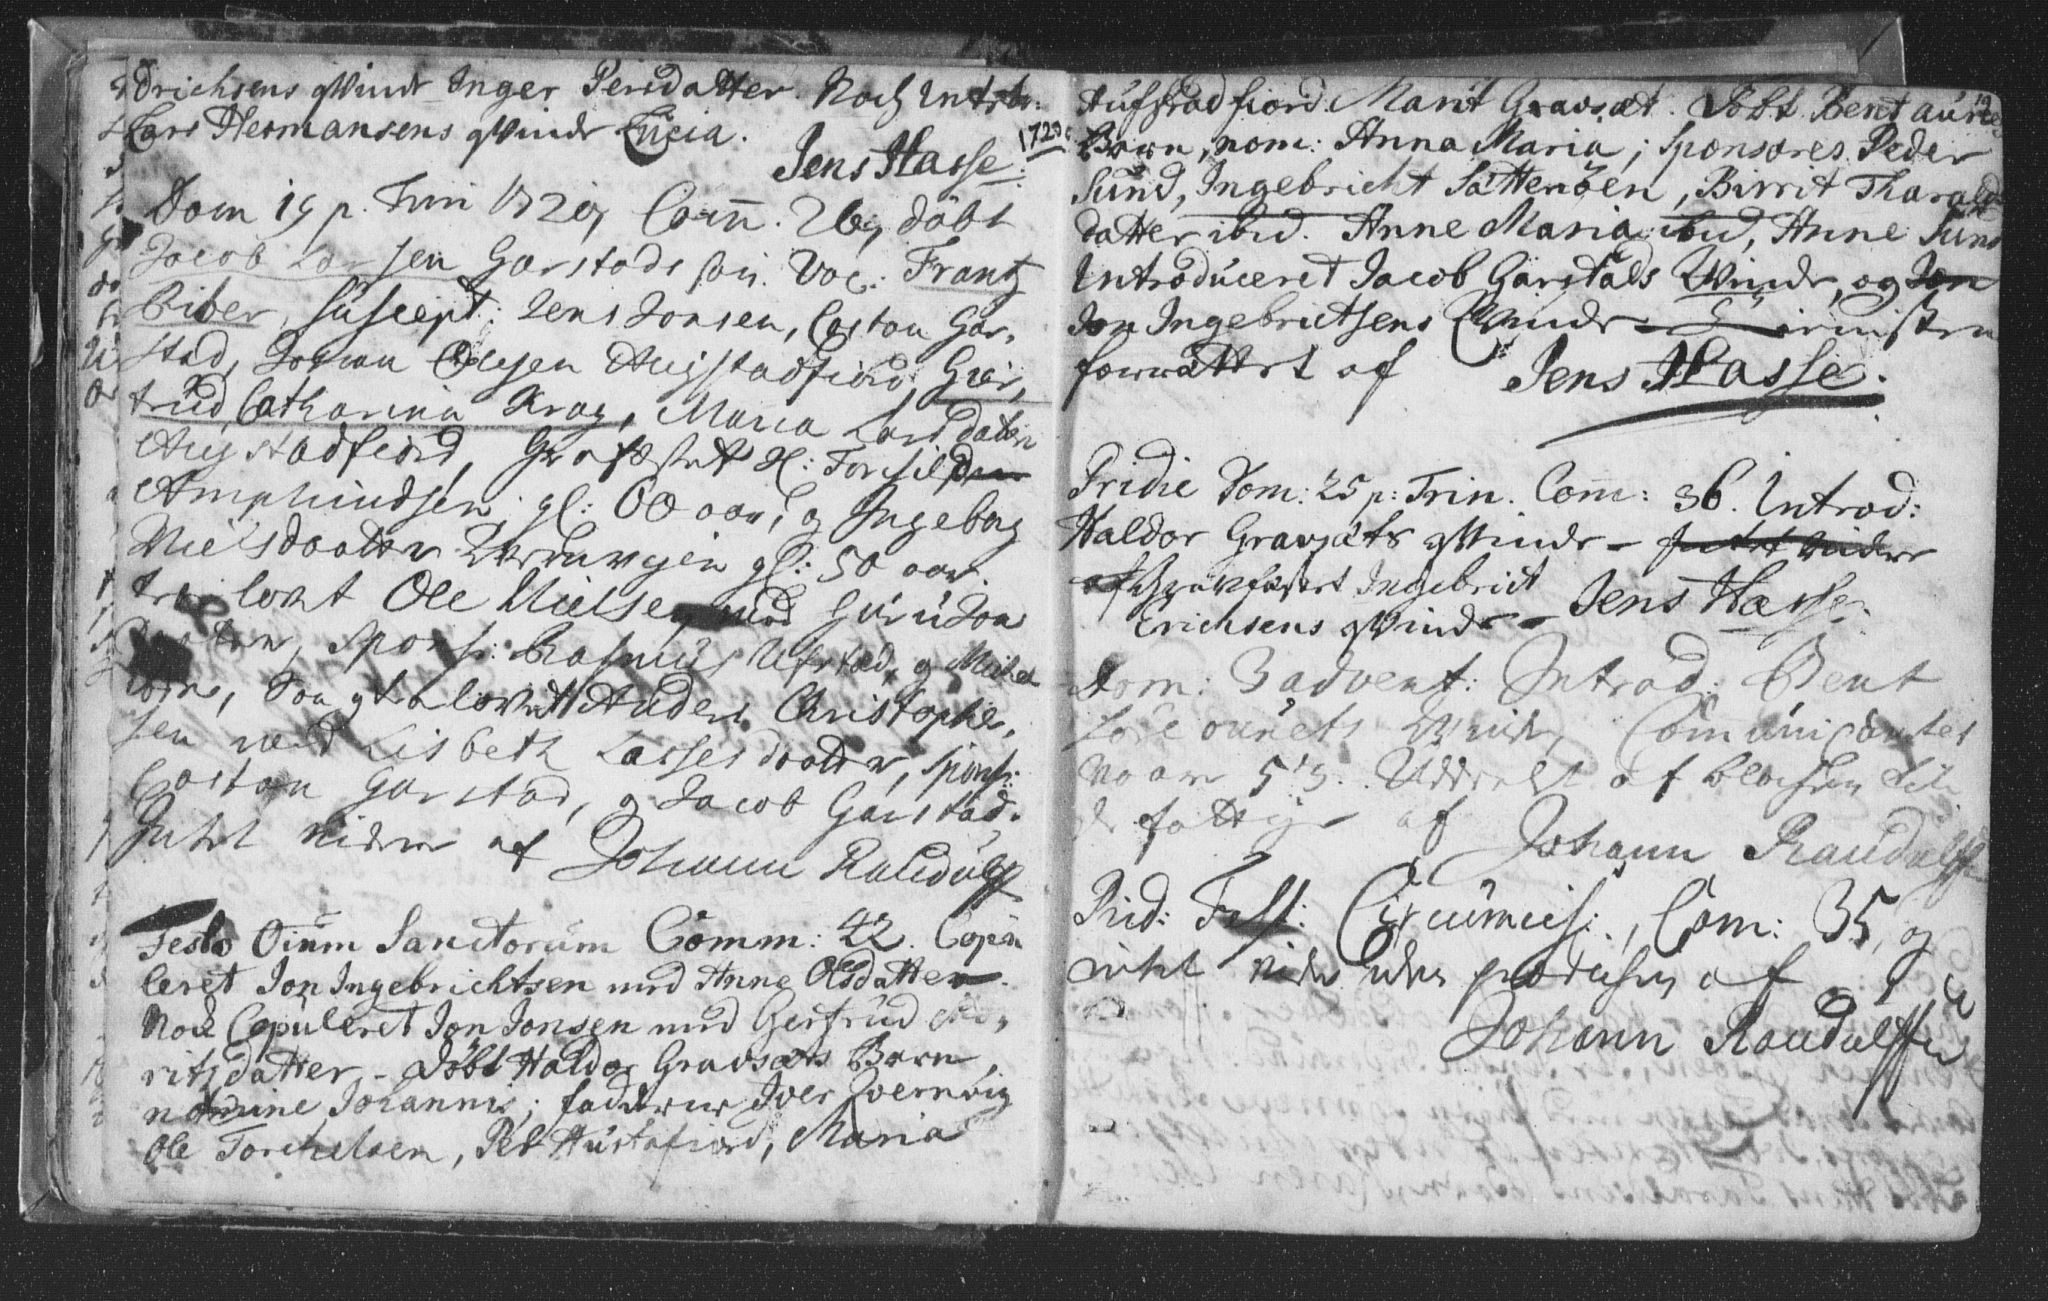 Erichsens qvinde Inger Persdatter. Noch Introd:
Lars Hermansens qvinde Lucia.
Jens Hasse. 1720
Dom 19 p. Trin 1720, Com̄. 26, döbt
Jacob Larsen Garstads sön. Voc: Frantz
Biber, suscept: Jens Jonsen, Casten Gar-
stad, Joran Olesen Augstadfiord, Gier-
trud Catharina Krag, Maria Lars dater
Augstadfiord, Grafæstet Sl: Torchild
Amphindsen gl: 60 aar, og Ingebog
Nielsdaatter gl: 50 aar.
trolovet Ole Nielsen med Guru Jon
daatter, Spons: Rasmus Ufstad, og Michel
ibid, Son trolovet Anders Christophe-
sen med Lisbeth Lassesdaatter, spons:
Casten Garstad, og Jacob Garstad.
Intet videre af Johann Randulff
Festo Oium Sanctorum Comm: 42. Copu
leret Jon Ingebrichtsen med Anne Olsdatter.
Noch Copuleret Jon Jonsen med Gertrud Mo-
ritzdatter - Döbt Haldor Gravsæts Barn,
nomine Johannis; faddere Iver Qvernvig
Ole Torchelsen, Per Hustafiord, Maria
19
Aufstadfiord. Marit Gravsæt. Döbt Bent aunes
Barn, nom: Anna Maria; Sponsores Peder
Sund, Ingebricht Sættenöen, Birrit Tharalds
datter ibid. Anne Maria ibid, Anne Sund
Introduceret Jacob Garstads Qvinde, og Jon
Jon Ingebrictsens Qvinde
forrættet af Jens Hasse.
Pridie Dom: 25 p: Trin. Com̄: 36. Introd:
Haldor Gravsæts qvinde - Intet videre
Ingebrict
Erichsens qvinde - Jens Hasse.
Dom: 3 advent: Introd: Bent
Qvinde, Communicantes
vare 53. Uddeelt af blochen til
de fattige af Johann Randulff
Prid: Fest: Circumcis:, Com: 35, og
intet videre uden prædichen af
Johann Randulff